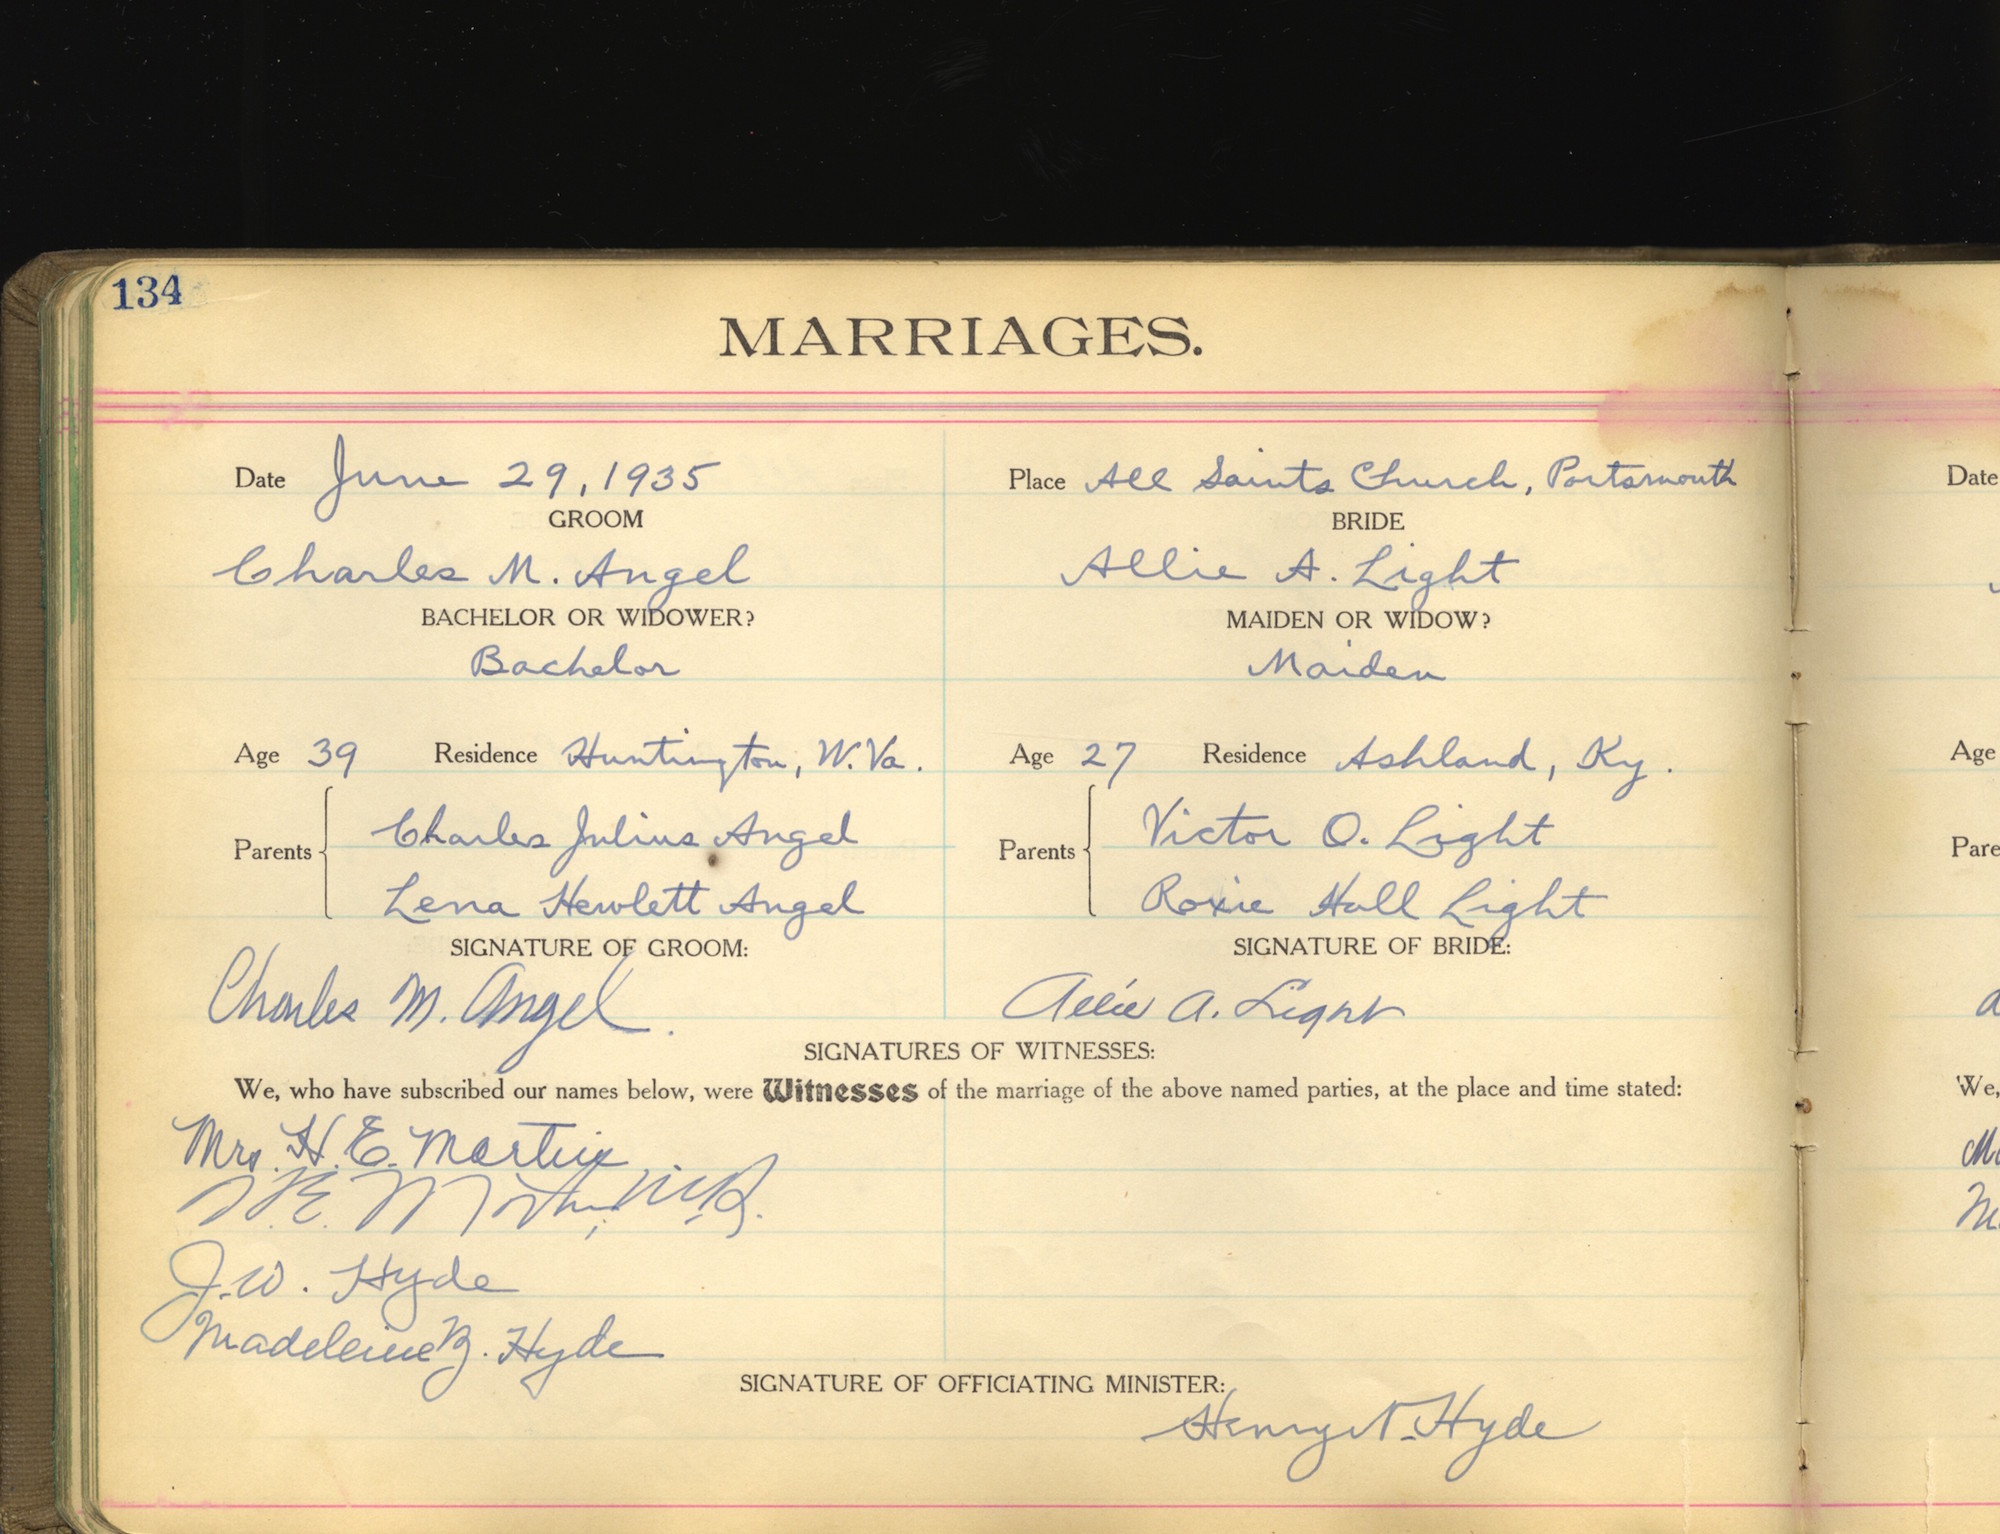 134
MARRIAGES.
Date June 29, 1935
Place All Saints Church, Portsmouth
GROOM
BRIDE
Charles M. Angel
Allie A. Light
BACHELOR OR WIDOWER?
MAIDEN OR WIDOW?
Bachelor
Maiden
Age 39 Residence Huntington, W. Va.
Age 27 Residence Ashland, Ky.
Parents
Charles Julius Angel
Lena Hewlett Angel
Parents
Victor O. Light
Roxie Hall Light
SIGNATURE OF GROOM:
SIGNATURE OF BRIDE:
Charles M. Angel.
Allie A. Light
SIGNATURES OF WITNESSES:
We, who have subscribed our names below, were Witnesses of the marriage of the above named parties, at the place and time stated:
Mrs. H. E. Martin
H. E. Martin, M.D.
J. W. Hyde
Madeleine B. Hyde
SIGNATURE OF OFFICIATING MINISTER:
Henry N. Hyde
Date
Age
Pare
We,